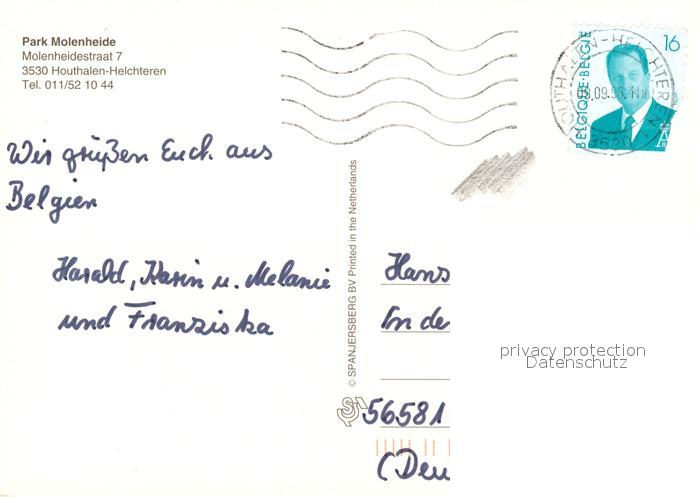 Park Molenheide
Molenheidestraat 7
3530 Houthalen-Helchteren
Tel. 011/52 10 44
Wir grüßen Euch aus
Belgien
Harald, Karin u. Melanie
und Franziska
© SPANJERSBERG BV Printed in the Netherlands
BELGIQUE-BELGIE
16
A
HOUTHALEN-HELCHTEREN
3530
Hans
In de
56581
(Deu
privacy protection
Datenschutz